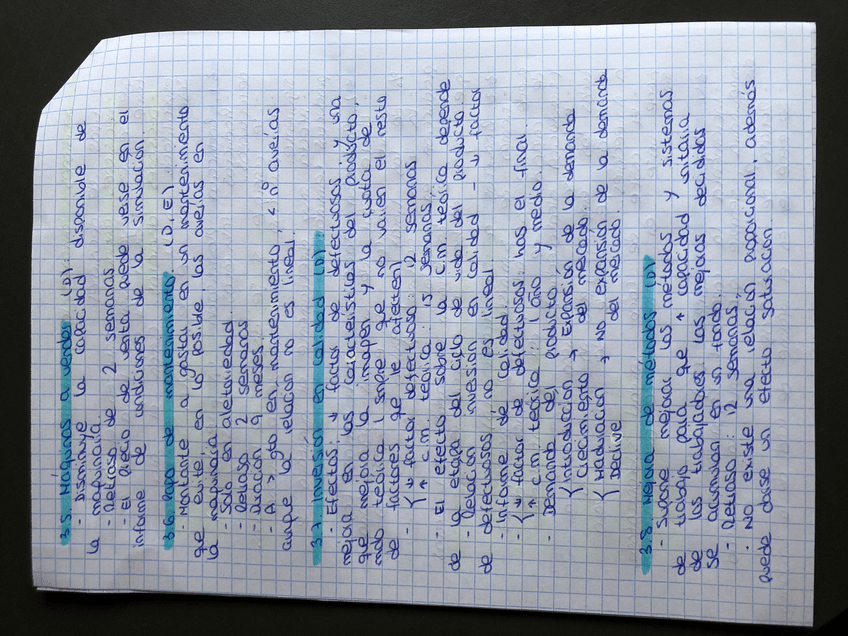 3.5. Máquinas a vender (D).
- Disminuye la capacidad disponible de
la maquinaria.
- Retraso de 2 semanas
- El precio de venta puede verse en el
informe de condiciones de la simulación.
3.6. Papo de mantenimiento. (D, E).
- Montante a gastar en un mantenimiento
que evite, en lo posible, las averías en
la maquinaria
- Solo en aletoriedad.
- Retraso 2 semanas
- Duración 9 meses.
- A > gto en mantenimiento, < nº averías
aunque la relación no es lineal.
3.7. Inversión en calidad (D)
- Efectos: ↓ factor de defectuosos y una
mejora en las características del producto,
que mejora la imagen y la cuota de
mdo teórica (smpre que no varíen el resto
de factores que le afecten)
- { ↓ factor defectuoso: 12 semanas
{ ↑ c.m. teórica: 15 semanas.
- El efecto sobre la c.m. teórica depende
de la etapa del ciclo de vida del producto.
- Relación inversión en calidad - ↓ factor
de defectuosos no es lineal.
- Informe de calidad.
- { ↓ factor de defectuosos: has el final.
{ ↑ c.m. teórica: 1 año y medio.
- Demanda del producto.
{ Introducción → Expansión de la demanda
Crecimiento del mercado.
{ Maduración → No expansión de la demanda
Declive del mercado.
3.8. Mejora de métodos (D)
- Supone mejorar los métodos y sistemas
de trabajo para que ↑ capacidad unitaria
de los trabajadores. Las mejoras decididas
se acumulan en un fondo.
- Retraso: 12 semanas
- No existe una relación proporcional, además
puede darse un efecto saturación.